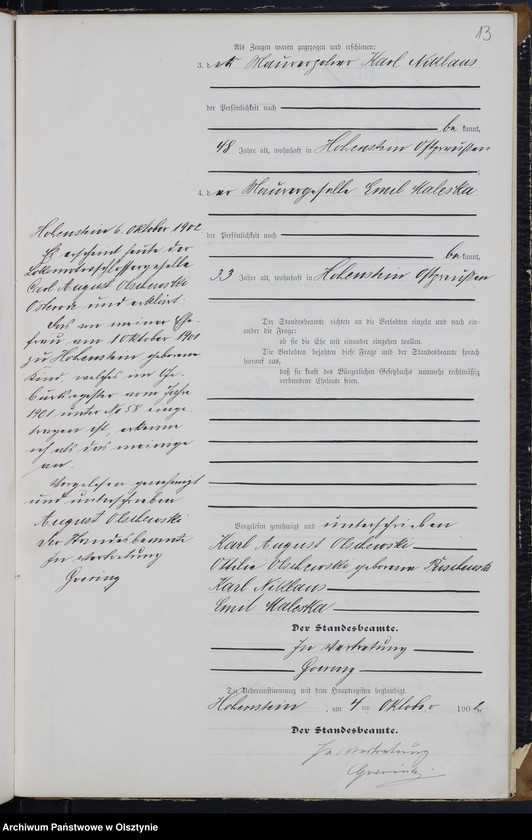 13
Als Zeugen waren zugezogen und erschienen:
3. der Maurerpolier Karl Niklaus
der Persönlichkeit nach
be kannt,
48 Jahre alt, wohnhaft in Hohenstein Ostpreußen
4. der Maurergeselle Emil Maleska
der Persönlichkeit nach
be kannt,
33 Jahre alt, wohnhaft in Hohenstein Ostpreußen
Der Standesbeamte richtete an die Verlobten einzeln und nach ein-
ander die Frage:
ob sie die Ehe mit einander eingehen wollen.
Die Verlobten bejahten diese Frage und der Standesbeamte sprach
hierauf aus,
daß sie kraft des Bürgerlichen Gesetzbuchs nunmehr rechtmäßig
verbundene Eheleute seien.
Vorgelesen, genehmigt und unterschrieben
Karl August Olschewski
Ottilie Olschewski geborene
Karl Niklaus
Emil Maleska
Der Standesbeamte.
In Vertretung
Goering
Die Uebereinstimmung mit dem Hauptregister beglaubigt.
Hohenstein, am 4 ten Oktober 1902
Der Standesbeamte.
In Vertretung
Goering
Hohenstein 6. Oktober 1902
Es erscheint heute der
Carl August Olschewski
Osterode und erklärt:
Das von meiner Ehe-
frau am 1 Oktober 1901
zu Hohenstein geborene
Kind, welches im Ge-
burtsregister vom Jahre
1901 unter No 58 einge-
tragen ist, erkenne
ich als das meinige
an.
Vorgelesen genehmigt
und unterschrieben
August Olschewski
Der Standesbeamte
In Vertretung
Goering
Archiwum Państwowe w Olsztynie